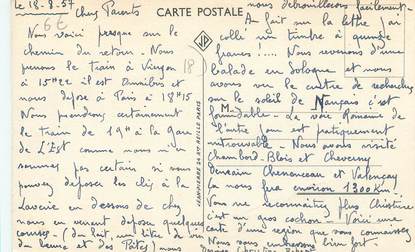 Le 18-8-57
Chers Parents
6E
CARTE POSTALE
Nous voici presque sur le
chemin du retour - Nous
prenons le train à Vierzon 18
à 15h22 il est Omnibus et
nous dépose à Paris à 18h15
Nous prendrons certainement
le train de 19h à la Gare
de L'Est comme nous n'en
sommes pas certain si vous
pouvez déposer les clés à la
Laverie en dessous de chez
nous en venant déposer quelques
courses - (du lait, un litre de vin
du beurre et des Pâtes) nous
nous débrouillerons facilement -
Au fait sur la lettre j'ai
collé un timbre à quinze
francs !.... Nous revenons d'une
balade en Sologne et nous
avons vu le centre de recherches
sur le soleil de Nançais c'est
M
formidable - La voie Romaine de
est pratiquement
introuvable - Nous avons visité
Chambord - Blois et Cheverny
demain Chenonceau et Valençay
ça nous fera environ 1300 km
Vous reconnaîtrez plus Christine
c'est un gros cochon ! Voici une
carte d'une région que vous connaissez
Nous vous embrassons bien fort